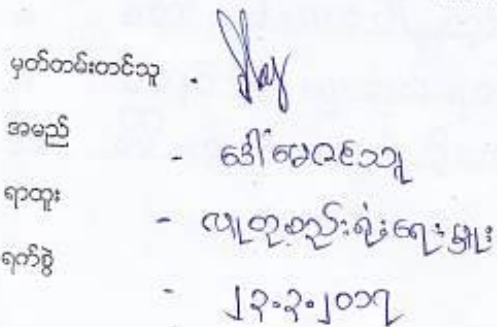 မှတ်တမ်းတင်သူ -
အမည် - ဒေါ်မေဇင်သူ
ရာထူး - လူထုစည်းရုံးရေးမှူး
ရက်စွဲ - ၂၃.၃.၂၀၁၇